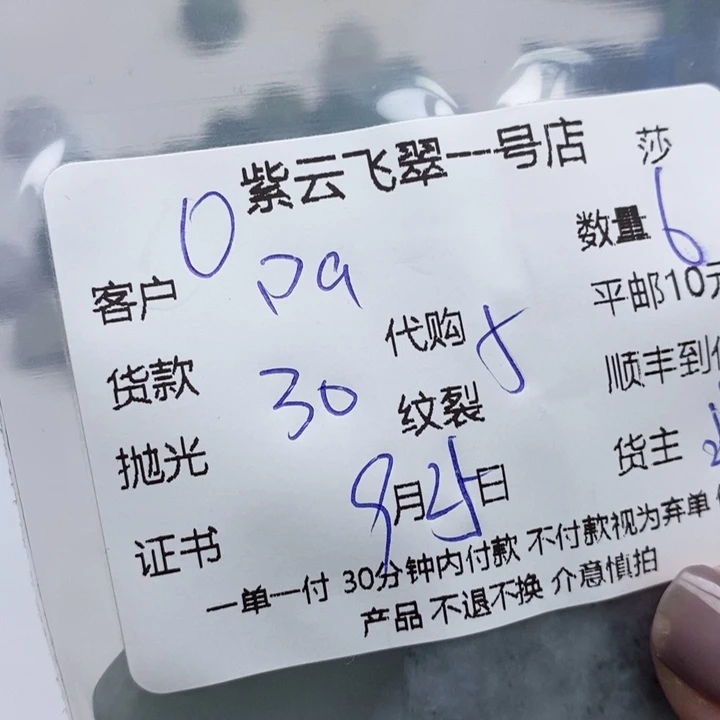 紫云飞翠一号店 莎
0 数量 6
客户 pa 平邮10元
货款 30 代购 5 顺丰到付
抛光 纹裂 货主
证书 9月25日
一单一付 30分钟内付款 不付款视为弃单
产品 不退不换 介意慎拍